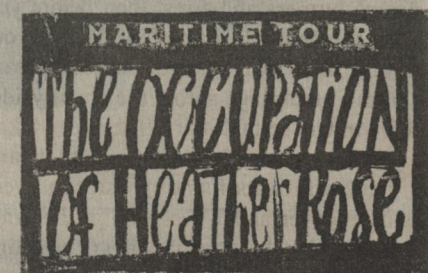 MARITIME TOUR
The OCCUPATION
OF HeaTher Rose